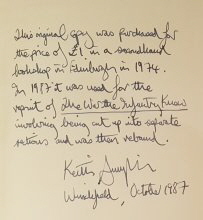 This original copy was purchased for
the price of £1 in a secondhand
bookshop in Edinburgh in 1974.
In 1987 it was used for the
reprint of The War the Infantry Knew
involving being cut up into separate
sections and was then rebound.
Keith Simpson
October 1987